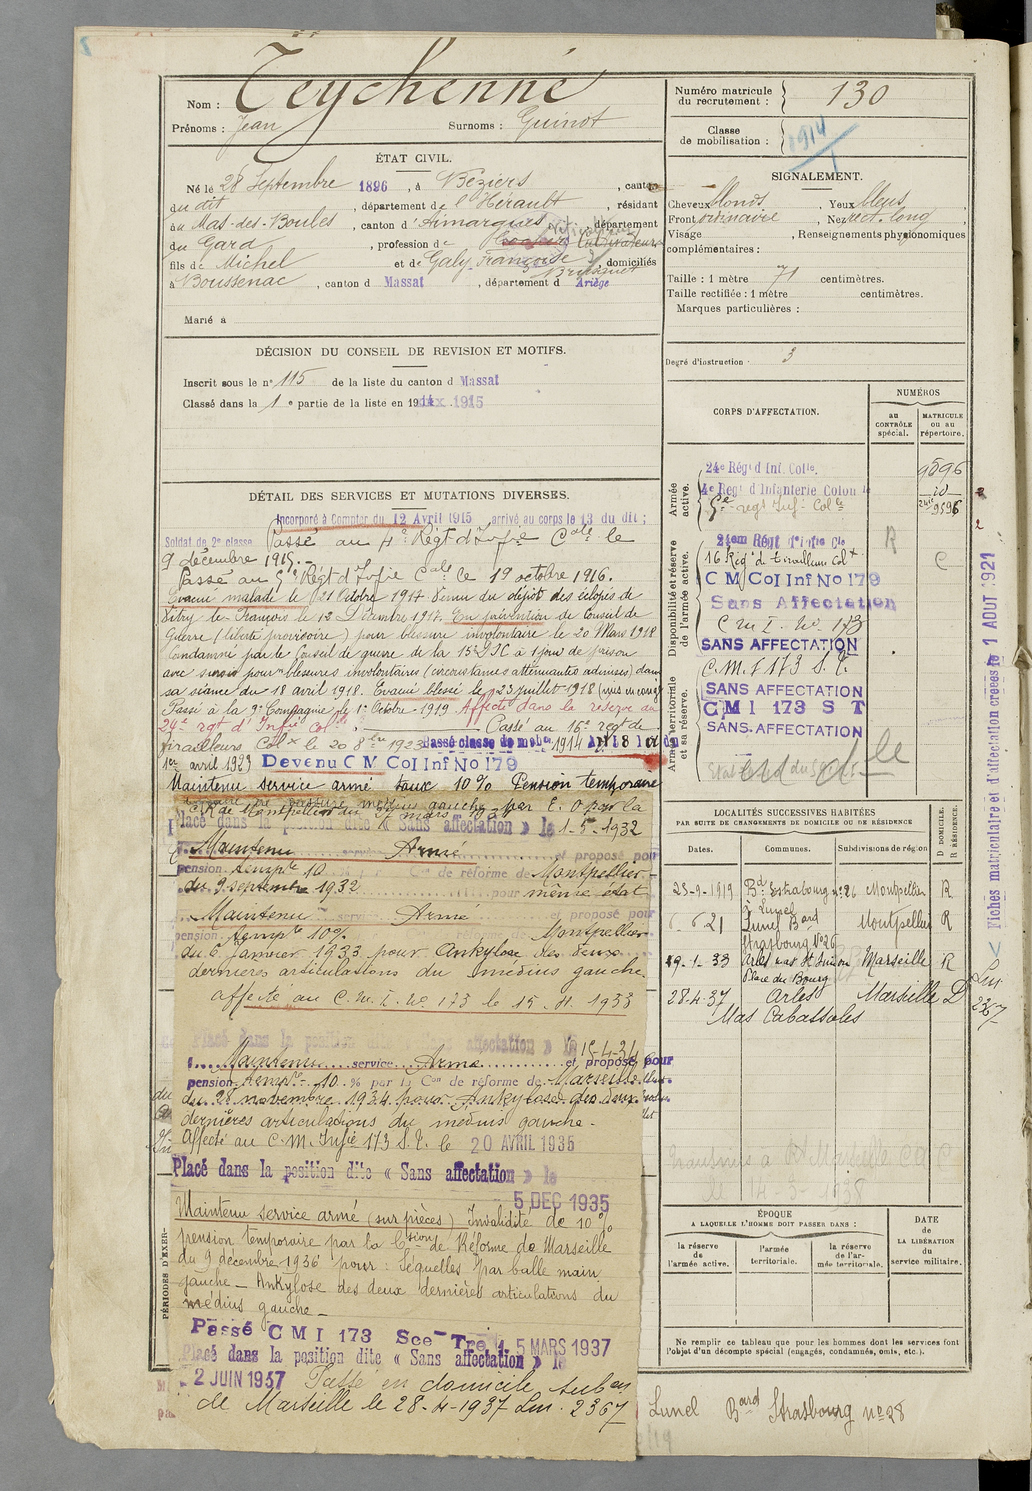 Nom : Teychenné
Prénoms : Jean Surnoms : Guinot
ÉTAT CIVIL.
Né le 28 Septembre 1896, à Béziers, canton
du dit, département de l'Hérault, résidant
au Mas-des-Boules, canton d'Aimargues, département
du Gard, profession de Cultivateur
fils de Michel et de Galy Françoise, domiciliés
à Boussenac, canton d Massat, département d Ariège
Marié à
DÉCISION DU CONSEIL DE REVISION ET MOTIFS.
Inscrit sous le n° 115 de la liste du canton d Massat
Classé dans la 1e partie de la liste en 19 1915
DÉTAIL DES SERVICES ET MUTATIONS DIVERSES.
Incorporé à Compter du 12 Avril 1915 arrivé au corps le 13 du dit ;
Soldat de 2e classe Passé au 4e Régt d'Infie Cale le
9 décembre 1915.-
Passé au 5e Régt d'Infie Cale le 19 octobre 1916.
Evacué malade le 21 Octobre 1917 Venu du dépôt des éclopés de
Vitry-le-François le 12 Décembre 1917. En prévention de Conseil de
Guerre (liberté provisoire) pour blessure involontaire le 20 Mars 1918
Condamné par le Conseil de guerre de la 15e D.I.C à 1 jour de prison
avec sursis pour blessures involontaires (circonstances atténuantes admises) dans
sa séance du 18 avril 1918. Evacué blessé le 23 juillet 1918
Passé à la 9e Compagnie le 1er Octobre 1919 Affecté dans la réserve au
24e rgt d'Infie Cole Passé au 16e régt de
tirailleurs Colx le 20 8bre 1923 Passé classe de mobon 1914
1er avril 1929 Devenu C M Col Inf No 179
Maintenu service armé taux 10% Pension temporaire
par la
C.R. de Montpellier du mars
Placé dans la position dite « Sans affectation » le 1-5-1932
Maintenu Armé et proposé pour
pension tempre 10 Con de réforme de Montpellier
du 9 septembre 1932 pour même état
Maintenu service Armé et proposé pour
pension tempre 10% Montpellier
du 6 janvier 1933 pour Ankylose des deux
dernières articulations du médius gauche
affecté au C.M.I. No 173 le 15.11.1933
Placé dans la position dite « Sans affectation » le 15-4-34
Maintenu service Armé et proposé pour
pension tempre 10 % par la Con de réforme de Marseille
du 28 novembre 1934 pour Ankylose des deux
dernières articulations du médius gauche-
Affecté au C.M. Infie 173 S.T. le 20 AVRIL 1935
Placé dans la position dite « Sans affectation » le
5 DEC 1935
Maintenu service armé (sur pièces) Invalidité de 10%
pension temporaire par la Csion de Réforme de Marseille
du 9 décembre 1936 pour : Séquelles par balle main
gauche - Ankylose des deux dernières articulations du
médius gauche -
Passé C M I 173 Sce Tre 1 5 MARS 1937
Placé dans la position dite « Sans affectation » le
2 JUIN 1937 Passé en domicile
de Marseille le 28-4-1937 Lm. 2367
PÉRIODES D'EXER-
Numéro matricule du recrutement : 130
Classe de mobilisation : 1914
SIGNALEMENT.
Cheveux blonds, Yeux bleus,
Front ordinaire, Nez rect. long,
Visage , Renseignements physionomiques
complémentaires :
Taille : 1 mètre 71 centimètres.
Taille rectifiée : 1 mètre centimètres.
Marques particulières :
Degré d'instruction : 3
CORPS D'AFFECTATION.
NUMÉROS
au CONTRÔLE spécial.
MATRICULE ou au répertoire.
Armée active.
24e Régt d'Inf. Colle. 9596
4e Regt d'Infanterie Colon
5e regt Inf. Colle 9596
Disponibilité et réserve de l'armée active.
24em Régt d'Infie Cle R
16 Régt de tirailleurs Colx C
C M Col Inf No 179
Sans Affectation
C M I. No. 173
SANS AFFECTATION
Armée territoriale et sa réserve.
C.M.I 173 S.T.
SANS AFFECTATION
C M I 173 S T
SANS AFFECTATION
LOCALITÉS SUCCESSIVES HABITÉES
PAR SUITE DE CHANGEMENTS DE DOMICILE OU DE RÉSIDENCE
Dates. Communes. Subdivisions de région D DOMICILE. R RÉSIDENCE.
23-9-1919 Bd Strasbourg n° 26 Montpellier R
à Lunel
6.6.21 Lunel Bard Strasbourg No 26 Montpellier R
19-1-33 Arles Place du Bourg Marseille R
28-4-37 Arles Marseille D
Mas Cabassoles
14-3-1938
ÉPOQUE
A LAQUELLE L'HOMME DOIT PASSER DANS :
la réserve de l'armée active.
l'armée territoriale.
la réserve de l'armée territoriale.
DATE de LA LIBÉRATION du service militaire.
Ne remplir ce tableau que pour les hommes dont les services font
l'objet d'un décompte spécial (engagés, condamnés, omis, etc.).
Lunel Bard Strasbourg no 28
Fiches matriculaire et d'affectation créées le 1 AOUT 1921
Lm
2367